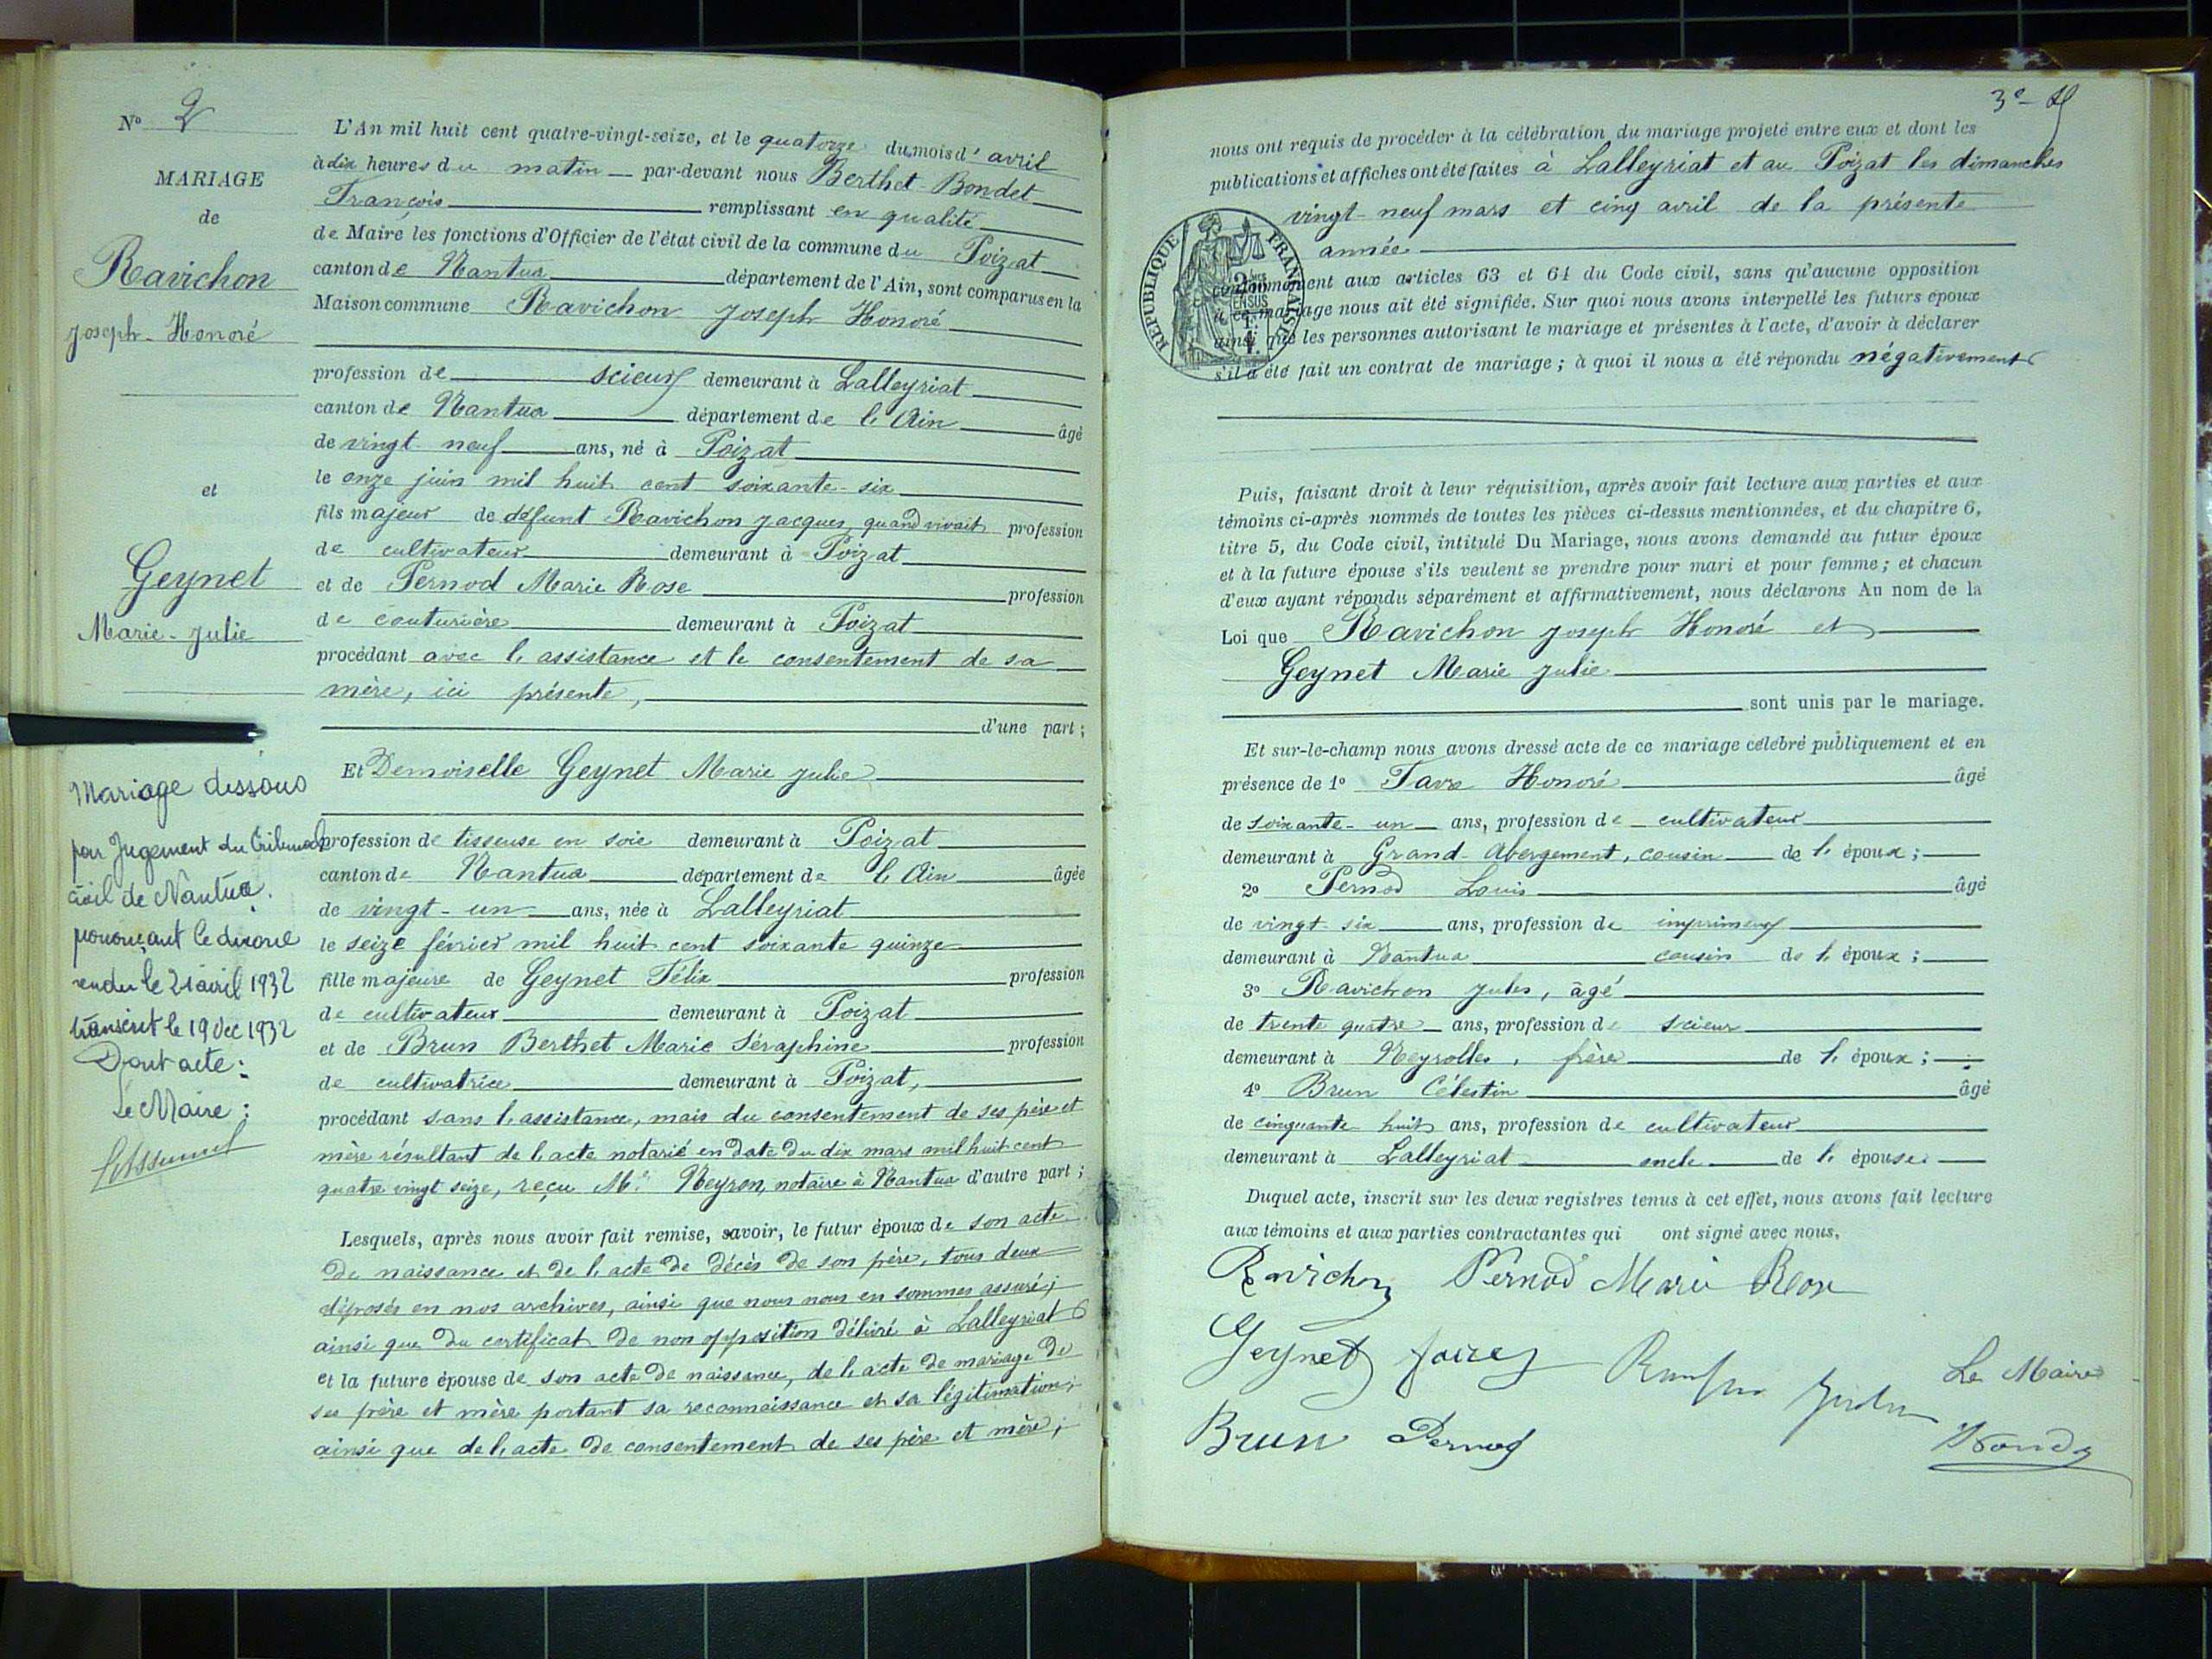 N° 2
MARIAGE
de
Ravichon
Joseph-Honoré
et
Geynet
Marie-Julie
Mariage dissous
par Jugement du Tribunal
civil de Nantua
prononçant le divorce
rendu le 21 avril 1932
transcrit le 19 Dec 1932
Dont acte:
Le Maire:
L'An mil huit cent quatre-vingt-seize, et le quatorze du mois d'avril
à dix heures du matin par-devant nous Berthet-Bondet
François remplissant en qualité
de Maire les fonctions d'Officier de l'état civil de la commune du Poizat
canton de Nantua département de l'Ain, sont comparus en la
Maison commune Ravichon Joseph Honoré
profession de scieur demeurant à Lalleyriat
canton de Nantua département de l'Ain âgé
de vingt neuf ans, né à Poizat
le onze juin mil huit cent soixante-six
fils majeur de défunt Ravichon Jacques, quand vivait profession
de cultivateur demeurant à Poizat
et de Pernod Marie Rose profession
de couturière demeurant à Poizat
procédant avec l'assistance et le consentement de sa
mère, ici présente,
d'une part;
Et Demoiselle Geynet Marie Julie
profession de tisseuse en soie demeurant à Poizat
canton de Nantua département de l'Ain âgée
de vingt-un ans, née à Lalleyriat
le seize février mil huit cent soixante quinze
fille majeure de Geynet Félix profession
de cultivateur demeurant à Poizat
et de Brun Berthet Marie Séraphine profession
de cultivatrice demeurant à Poizat,
procédant sans l'assistance, mais du consentement de ses père et
mère résultant de l'acte notarié en date du dix mars mil huit cent
quatre vingt seize, reçu Me Neyron, notaire à Nantua d'autre part;
Lesquels, après nous avoir fait remise, savoir, le futur époux de son acte
de naissance et de l'acte de décès de son père, tous deux
déposés en nos archives, ainsi que nous nous en sommes assuré;
ainsi que du certificat de non opposition délivré à Lalleyriat
et la future épouse de son acte de naissance, de l'acte de mariage de
ses père et mère portant sa reconnaissance et sa légitimation;
ainsi que de l'acte de consentement de ses père et mère;
3e
nous ont requis de procéder à la célébration du mariage projeté entre eux et dont les
publications et affiches ont été faites à Lalleyriat et au Poizat les dimanches
vingt-neuf mars et cinq avril de la présente
année
RÉPUBLIQUE FRANÇAISE
conformément aux articles 63 et 64 du Code civil, sans qu'aucune opposition
à ce mariage nous ait été signifiée. Sur quoi nous avons interpellé les futurs époux
ainsi que les personnes autorisant le mariage et présentes à l'acte, d'avoir à déclarer
s'il a été fait un contrat de mariage; à quoi il nous a été répondu négativement
Puis, faisant droit à leur réquisition, après avoir fait lecture aux parties et aux
témoins ci-après nommés de toutes les pièces ci-dessus mentionnées, et du chapitre 6,
titre 5, du Code civil, intitulé Du Mariage, nous avons demandé au futur époux
et à la future épouse s'ils veulent se prendre pour mari et pour femme; et chacun
d'eux ayant répondu séparément et affirmativement, nous déclarons Au nom de la
Loi que Ravichon Joseph Honoré et
Geynet Marie Julie
sont unis par le mariage.
Et sur-le-champ nous avons dressé acte de ce mariage célébré publiquement et en
présence de 1° Favre Honoré âgé
de soixante-un ans, profession de cultivateur
demeurant à Grand-Abergement, cousin de l'époux;
2° Pernod Louis âgé
de vingt-six ans, profession de imprimeur
demeurant à Nantua cousin de l'époux;
3° Ravichon Jules, âgé
de trente quatre ans, profession de scieur
demeurant à Neyrolles, frère de l'époux;
4° Brun Célestin âgé
de cinquante huit ans, profession de cultivateur
demeurant à Lalleyriat oncle de l'épouse.
Duquel acte, inscrit sur les deux registres tenus à cet effet, nous avons fait lecture
aux témoins et aux parties contractantes qui ont signé avec nous.
Ravichon Pernod Marie Rose
Geynet
Le Maire
Brun Pernod